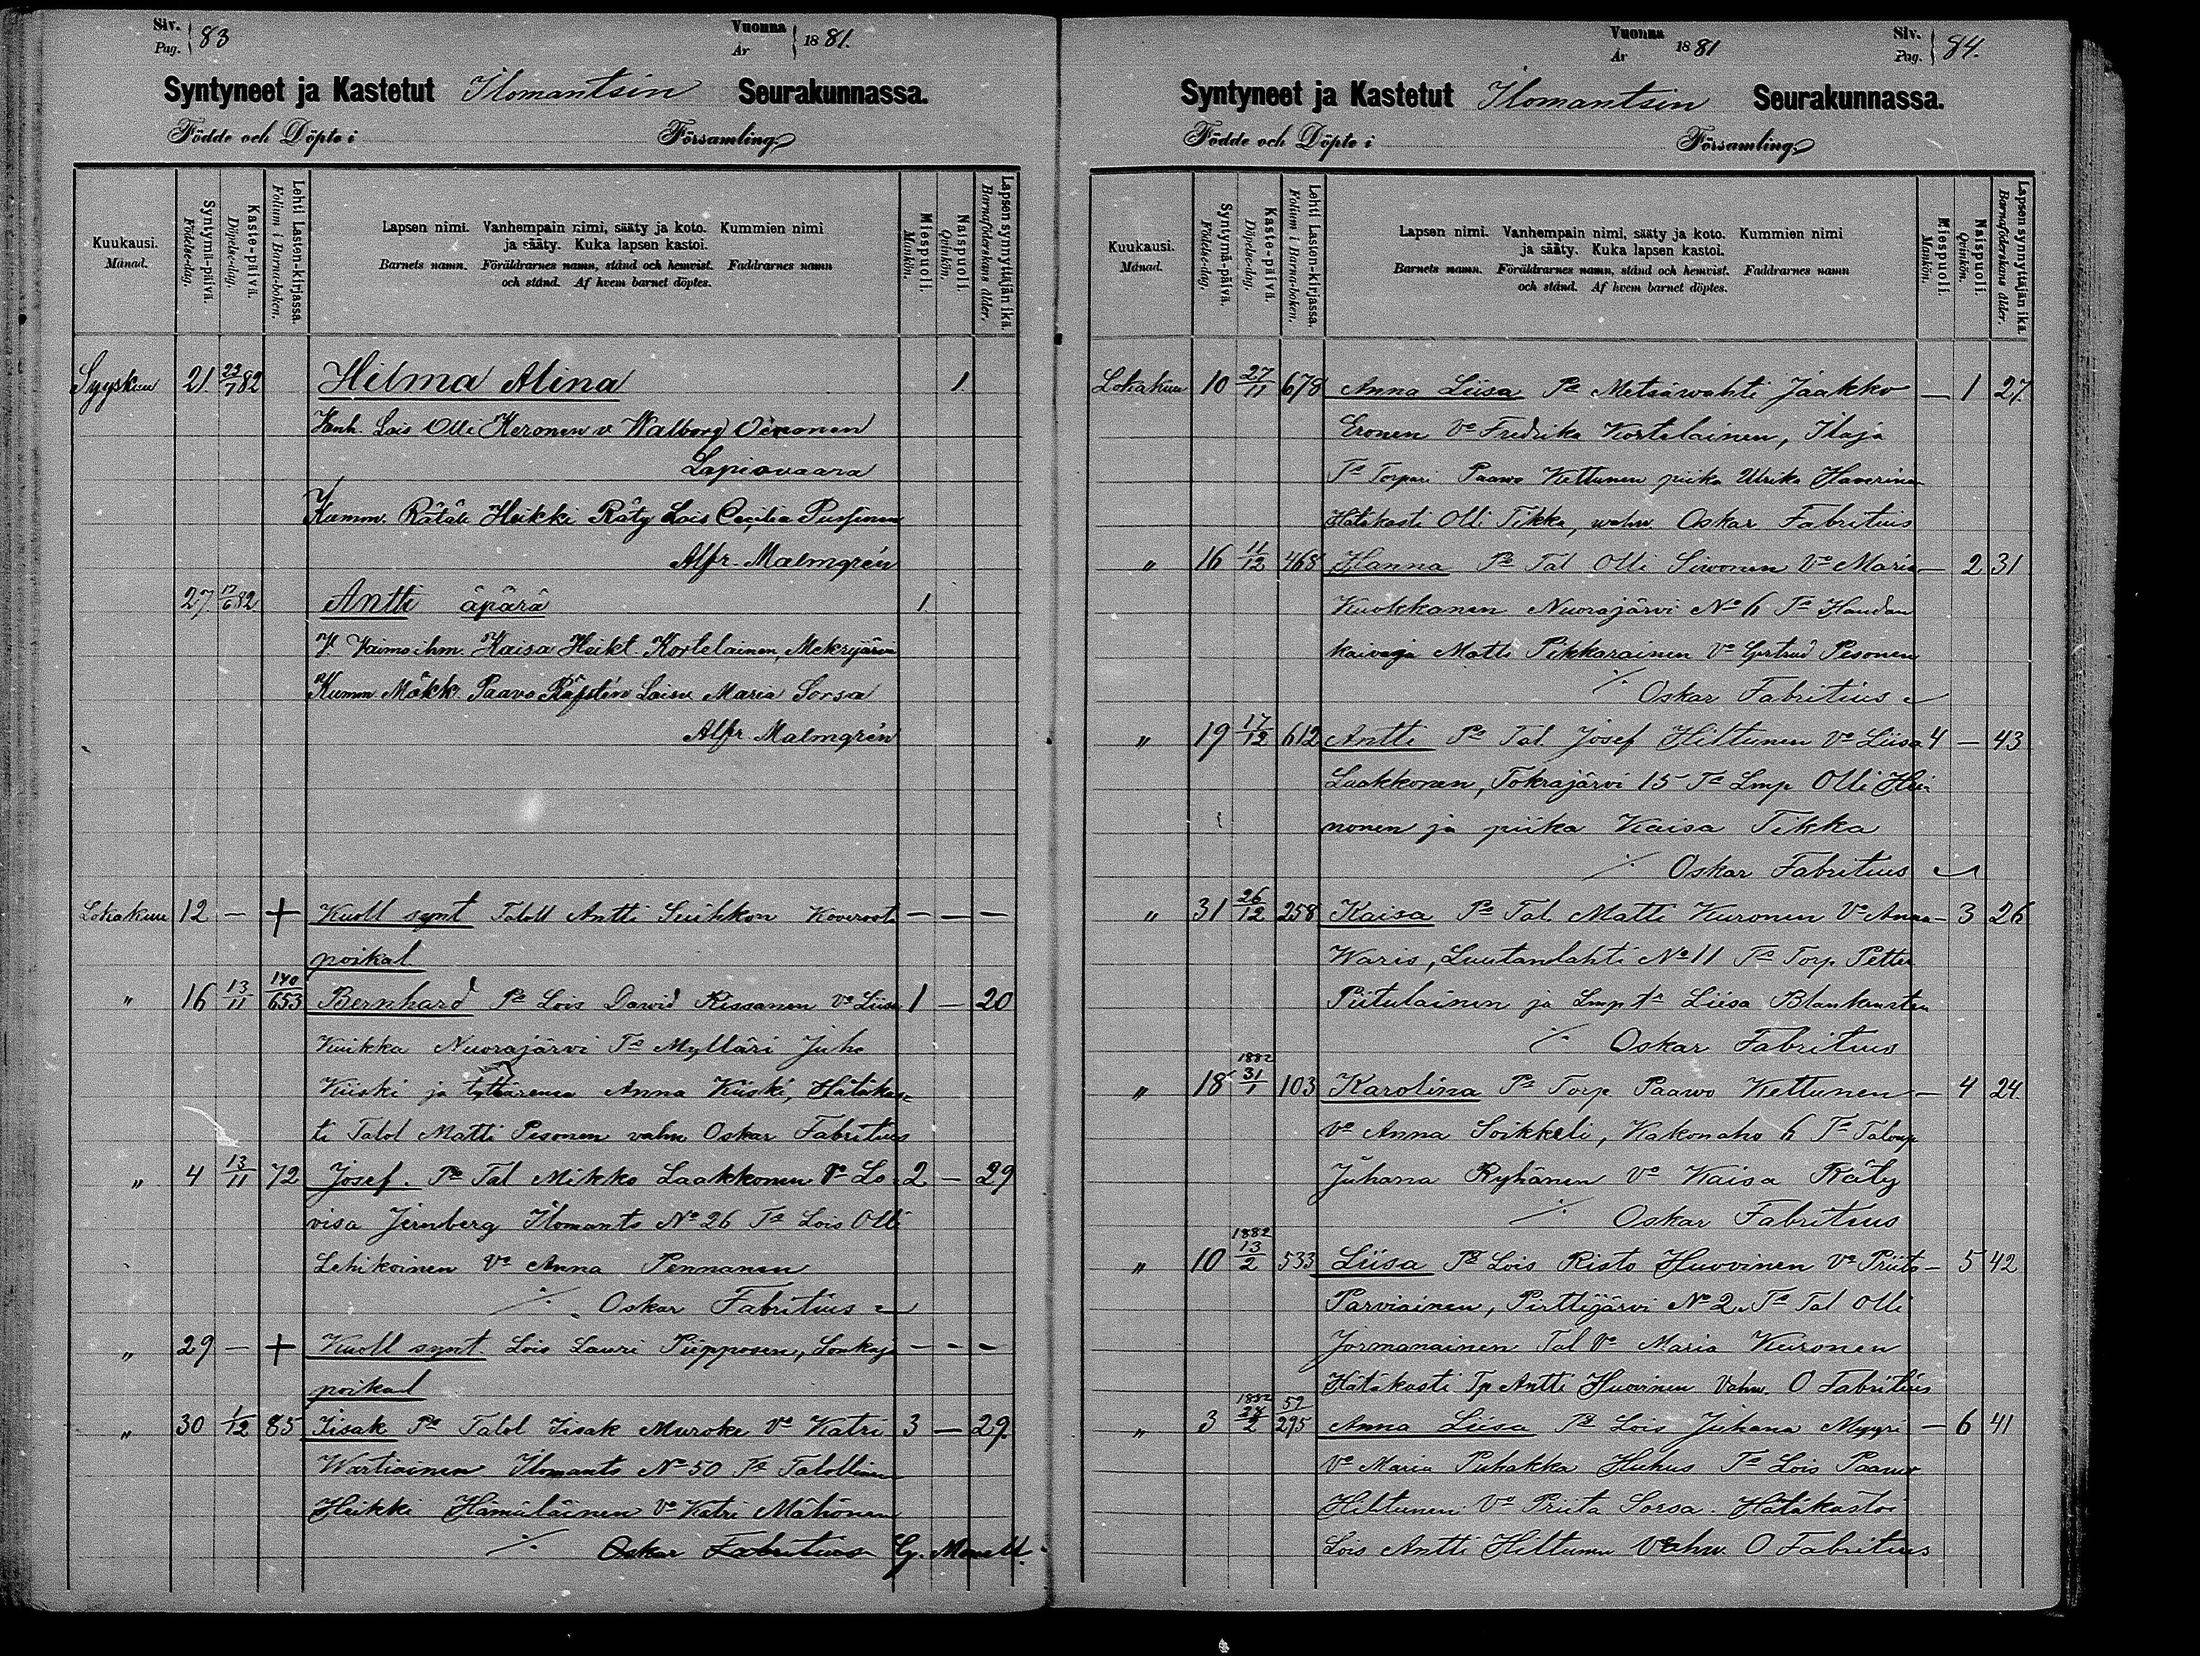 Siv. Pag. 83
Vuonna År 1881.
Syntyneet ja Kastetut Ilomantsin Seurakunnassa.
Födde och Döpte i Församling.
Kuukausi. Månad.
Syntymä-päivä. Födelse-dag.
Kaste-päivä. Döpelse-dag.
Lehti Lasten-kirjassa. Folium i Barna-boken.
Lapsen nimi. Vanhempain nimi, sääty ja koto. Kummien nimi
ja sääty. Kuka lapsen kastoi.
Barnets namn. Föräldrarnes namn, stånd och hemvist. Faddrarnes namn
och stånd. Af hvem barnet döptes.
Miespuoli. Mankön.
Naispuoli. Qvinkön.
Lapsen synnyttäjän ikä. Barnaföderskans ålder.
Syyskuu 21. 22/7 82 Hilma Alina 1.
Vanh. Lois Olli Keronen v. Walborg Oinonen
Lapiovaara
Kumm. Rätäli Heikki Räty Lois Cecilia Pussinen
Alfr. Malmgrén
27. 17/6 82 Antti äpärä 1.
V. Vaimoihm. Kaisa Heikt. Kortelainen, Mekrijärvi
Kumm. Mökk. Paavo Loisv. Maria Sorsa
Alfr. Malmgrén
Lokakuu 12 — + Kuoll synt Taloll Antti Suihkon — — —
poikal.
" 16 13/11 140/653 Bernhard Ps Lois Dawid Rissanen Vo Liisa 1 — 20
Kuikka Nuorajärvi Ts Mylläri Juho
Kiiski ja tyttärensä Anna Kiiski, Hätäkas-
ti Talol Matti Pesonen vahv Oskar Fabritius
" 4 13/11 72 Josef. Ps Tal Mikko Laakkonen Vo Lo- 2 — 29
visa Jernberg Ilomants No 26 Ts Lois Olli
Lehikoinen Vo Anna Pennanen
./. Oskar Fabritius
" 29 — + Kuoll synt. Lois Lauri Piipponen, Sonkaja — — —
poikal
" 30 1/12 85 Iisak Ps Talol Iisak Muroke Vo Katri 3 — 29.
Wartiainen Ilomants No 50 Ts Talollinen
Heikki Hämäläinen Vo Katri Mähönen
./. Oskar Fabritius
Vuonna År 1881
Siv. Pag. 84.
Syntyneet ja Kastetut Ilomantsin Seurakunnassa.
Födde och Döpte i Församling.
Kuukausi. Månad.
Syntymä-päivä. Födelse-dag.
Kaste-päivä. Döpelse-dag.
Lehti Lasten-kirjassa. Folium i Barna-boken.
Lapsen nimi. Vanhempain nimi, sääty ja koto. Kummien nimi
ja sääty. Kuka lapsen kastoi.
Barnets namn. Föräldrarnes namn, stånd och hemvist. Faddrarnes namn
och stånd. Af hvem barnet döptes.
Miespuoli. Mankön.
Naispuoli. Qvinkön.
Lapsen synnyttäjän ikä. Barnaföderskans ålder.
Lokakuu 10 27/11 678 Anna Liisa Ps Metsäwahti Jaakko — 1 27
Eronen Vo Fredrika Kortelainen, Ilaja
Ts Torpari Paawo Kettunen piika Ulrika Haverinen
Hätäkasti Olli Tikka, wahv Oskar Fabritius
" 16 11/12 468 Hanna Ps Tal Olli Siwonen Vo Maria — 2 31
Kuokkanen Nuorajärvi No 6 Ts Haudan
kaivaja Matti Pikkarainen Vo Gertrud Pesonen
./. Oskar Fabritius
" 19 17/12 612 Antti Ps Tal. Josef Hiltunen Vo Liisa 4 — 43
Laakkonen, Tokrajärvi 15 Ts Lmp Olli Hei-
nonen ja piika Kaisa Tikka
./. Oskar Fabritius
" 31 26/12 258 Kaisa Ps Tal. Matti Kuronen Vo Anna — 3 26
Waris, Luutanlahti No 11 Ts Torp. Petter
Piitulainen ja Lmp tr Liisa
./. Oskar Fabritius
" 18 1882 31/1 103 Karolina Ps Torp. Paawo Kettunen — 4 24.
Vo Anna Soikkeli, Kakonaho 6 Ts Talonp
Juhana Ryhänen Vo Kaisa Räty
./. Oskar Fabritius
" 10 1882 13/2 533 Liisa Ps Lois Risto Huovinen Vo Priita — 5 42
Parviainen, Pirttijärvi No 2. Ts Tal Olli
Jormanainen Tal Vo Maria Kuronen
Hätäkasti Tp Antti Huovinen Vahv. O Fabritius
" 3 1882 28/2 59/295 Anna Liisa Ps Lois Juhana Myyri — 6 41
Vo Maria Puhakka Huhus Ts Lois Paavo
Hiltunen Vo Priita Sorsa. Hätäkastoi
Lois Antti Hiltunen Vahv. O Fabritius